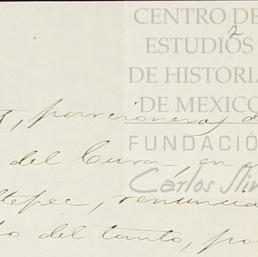 CENTRO DE
ESTUDIOS
DE HISTORIA
DE MEXICO
FUNDACIÓ
Carlos Slim
2
porcioneros d
del Cura, en
tepec, renuncia
del tanto, po